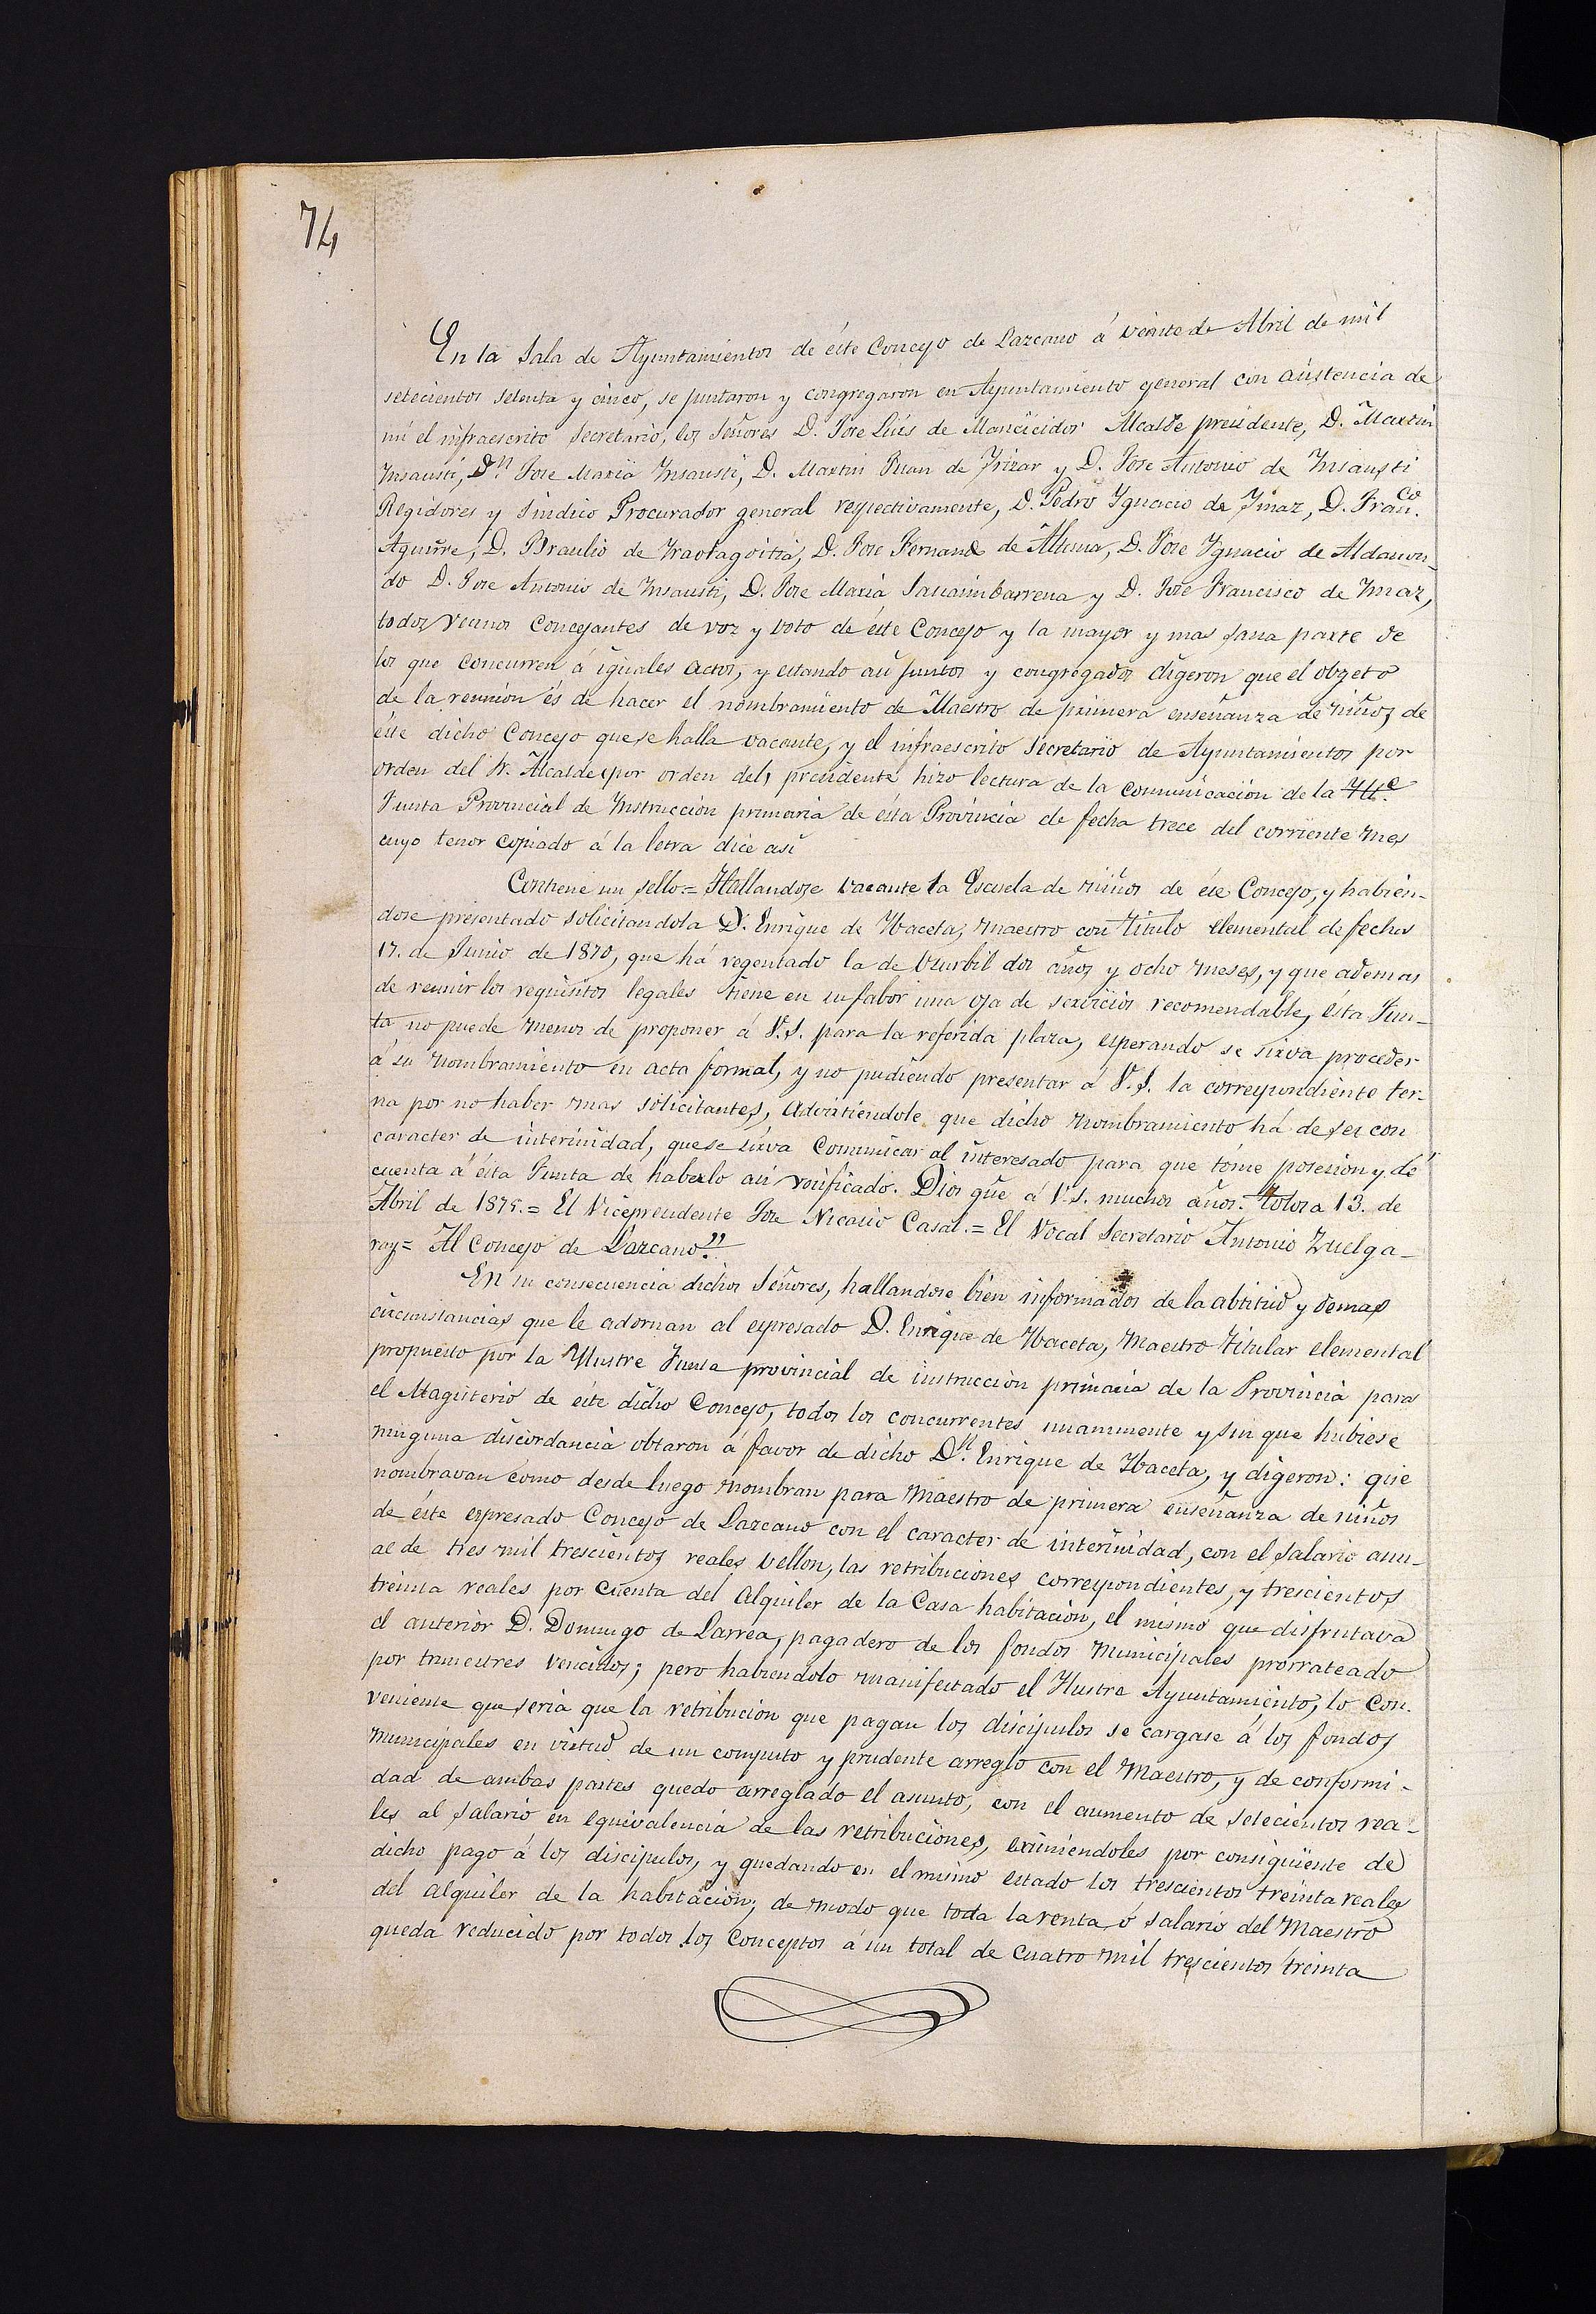 74
En la Sala de Ayuntamientos de éste Concejo de Lazcano á veinte de Abril de mil
setecientos setenta y cinco, se juntaron y congregaron en Ayuntamiento general con asistencia de
mi el infraescrito Secretario, los Señores D. Jose Luis de Mancicidor Alcalde presidente, D. Martin
Insausti, Dn. Jose Maria Insausti, D. Martin Juan de Irizar y D. Jose Antonio de Insausti
Regidores y Sindico Procurador general respectivamente, D. Pedro Ygnacio de Imaz, D. Franco.
Aguirre, D. Braulio de Traotagoitia, D. Jose Fernand de Altuna, D. Jose Ygnacio de Aldason-
do D. Jose Antonio de Insausti, D. Jose Maria Sasiainbarrena y D. José Francisco de Imaz,
todos vecinos Concejantes de voz y voto de éste Concejo y la mayor y mas sana parte de
los que concurren á iguales actos, y estando asi juntos y congregados digeron que el obgeto
de la reunion és de hacer el nombramiento de Maestro de primera enseñanza de niños de
éste dicho Concejo que se halla vacante, y el infraescrito Secretario de Ayuntamientos por
orden del Sr. Alcalde (por orden del) presidente hizo lectura de la comunicacion de la Ille.
Junta Provincial de Instruccion primaria de ésta Provincia de fecha trece del corriente mes
cuyo tenor copiado á la letra dice asi
Contiene un sello = Hallandose vacante la Escuela de niños de ése Concejo, y habien-
dose presentado solicitandola D. Enrique de Ybaceta, maestro con titulo elemental de fecha
17. de Junio de 1870, que há regentado la de Usurbil dos años y ocho meses, y que ademas
de reunir los requisitos legales tiene en su fabor una oja de servicios recomendable, ésta Jun-
ta no puede menos de proponer á V.S. para la referida plaza, esperando se sirva proceder
á su nombramiento en acta formal, y no pudiendo presentar á V.S. la correspondiente ter-
na por no haber mas solicitantes, advirtiendole que dicho nombramiento há de ser con
caracter de interinidad, que se sirva comunicar al interesado para que tóme posesion y dé
cuenta á ésta Junta de haberlo asi verificado. Dios gue á V.S. muchos años. Tolosa 13. de
Abril de 1875. = El Vicepresidente Jose Nicasio Casal. = El Vocal Secretario Antonio Zuelga-
ray = Al Concejo de Lazcano."
En su consecuencia dichos Señores, hallandose bien informados de la abtitud y demas
circunstancias que le adornan al espresado D. Enrique de Ybaceta, Maestro titular elemental
propuesto por la Yllustre Junta provincial de instruccion primaria de la Provincia para
el Magisterio de éste dicho Concejo, todos los concurrentes unanimente y sin que hubiese
ninguna discordancia obtaron á favor de dicho Dn. Enrique de Ybaceta, y digeron: que
nombravan como desde luego nombran para Maestro de primera enseñanza de niños
de éste espresado Concejo de Lazcano con el caracter de interinidad, con el salario anu-
al de tres mil trescientos reales vellon, las retribuciones correspondientes, y trescientos
treinta reales por cuenta del alquiler de la Casa habitacion, el mismo que disfrutava
el anterior D. Domingo de Larrea, pagadero de los fondos municipales prorrateado
por trimestres vencidos; pero habiendolo manifestado el Ilustre Ayuntamiento, lo con-
veniente que seria que la retribucion que pagan los discipulos se cargase á los fondos
municipales en virtud de un computo y prudente arreglo con el Maestro, y de conformi-
dad de ambas partes quedo arreglado el asunto, con el aumento de setecientos rea-
les al salario en equivalencia de las retribuciones, eximiendoles por consiguiente de
dicho pago á los discipulos, y quedando en el mismo estado los trescientos treinta reales
del alquiler de la habitacion; de modo que toda la renta ó salario del Maestro
queda reducido por todos los conceptos á un total de cuatro mil trescientos treinta